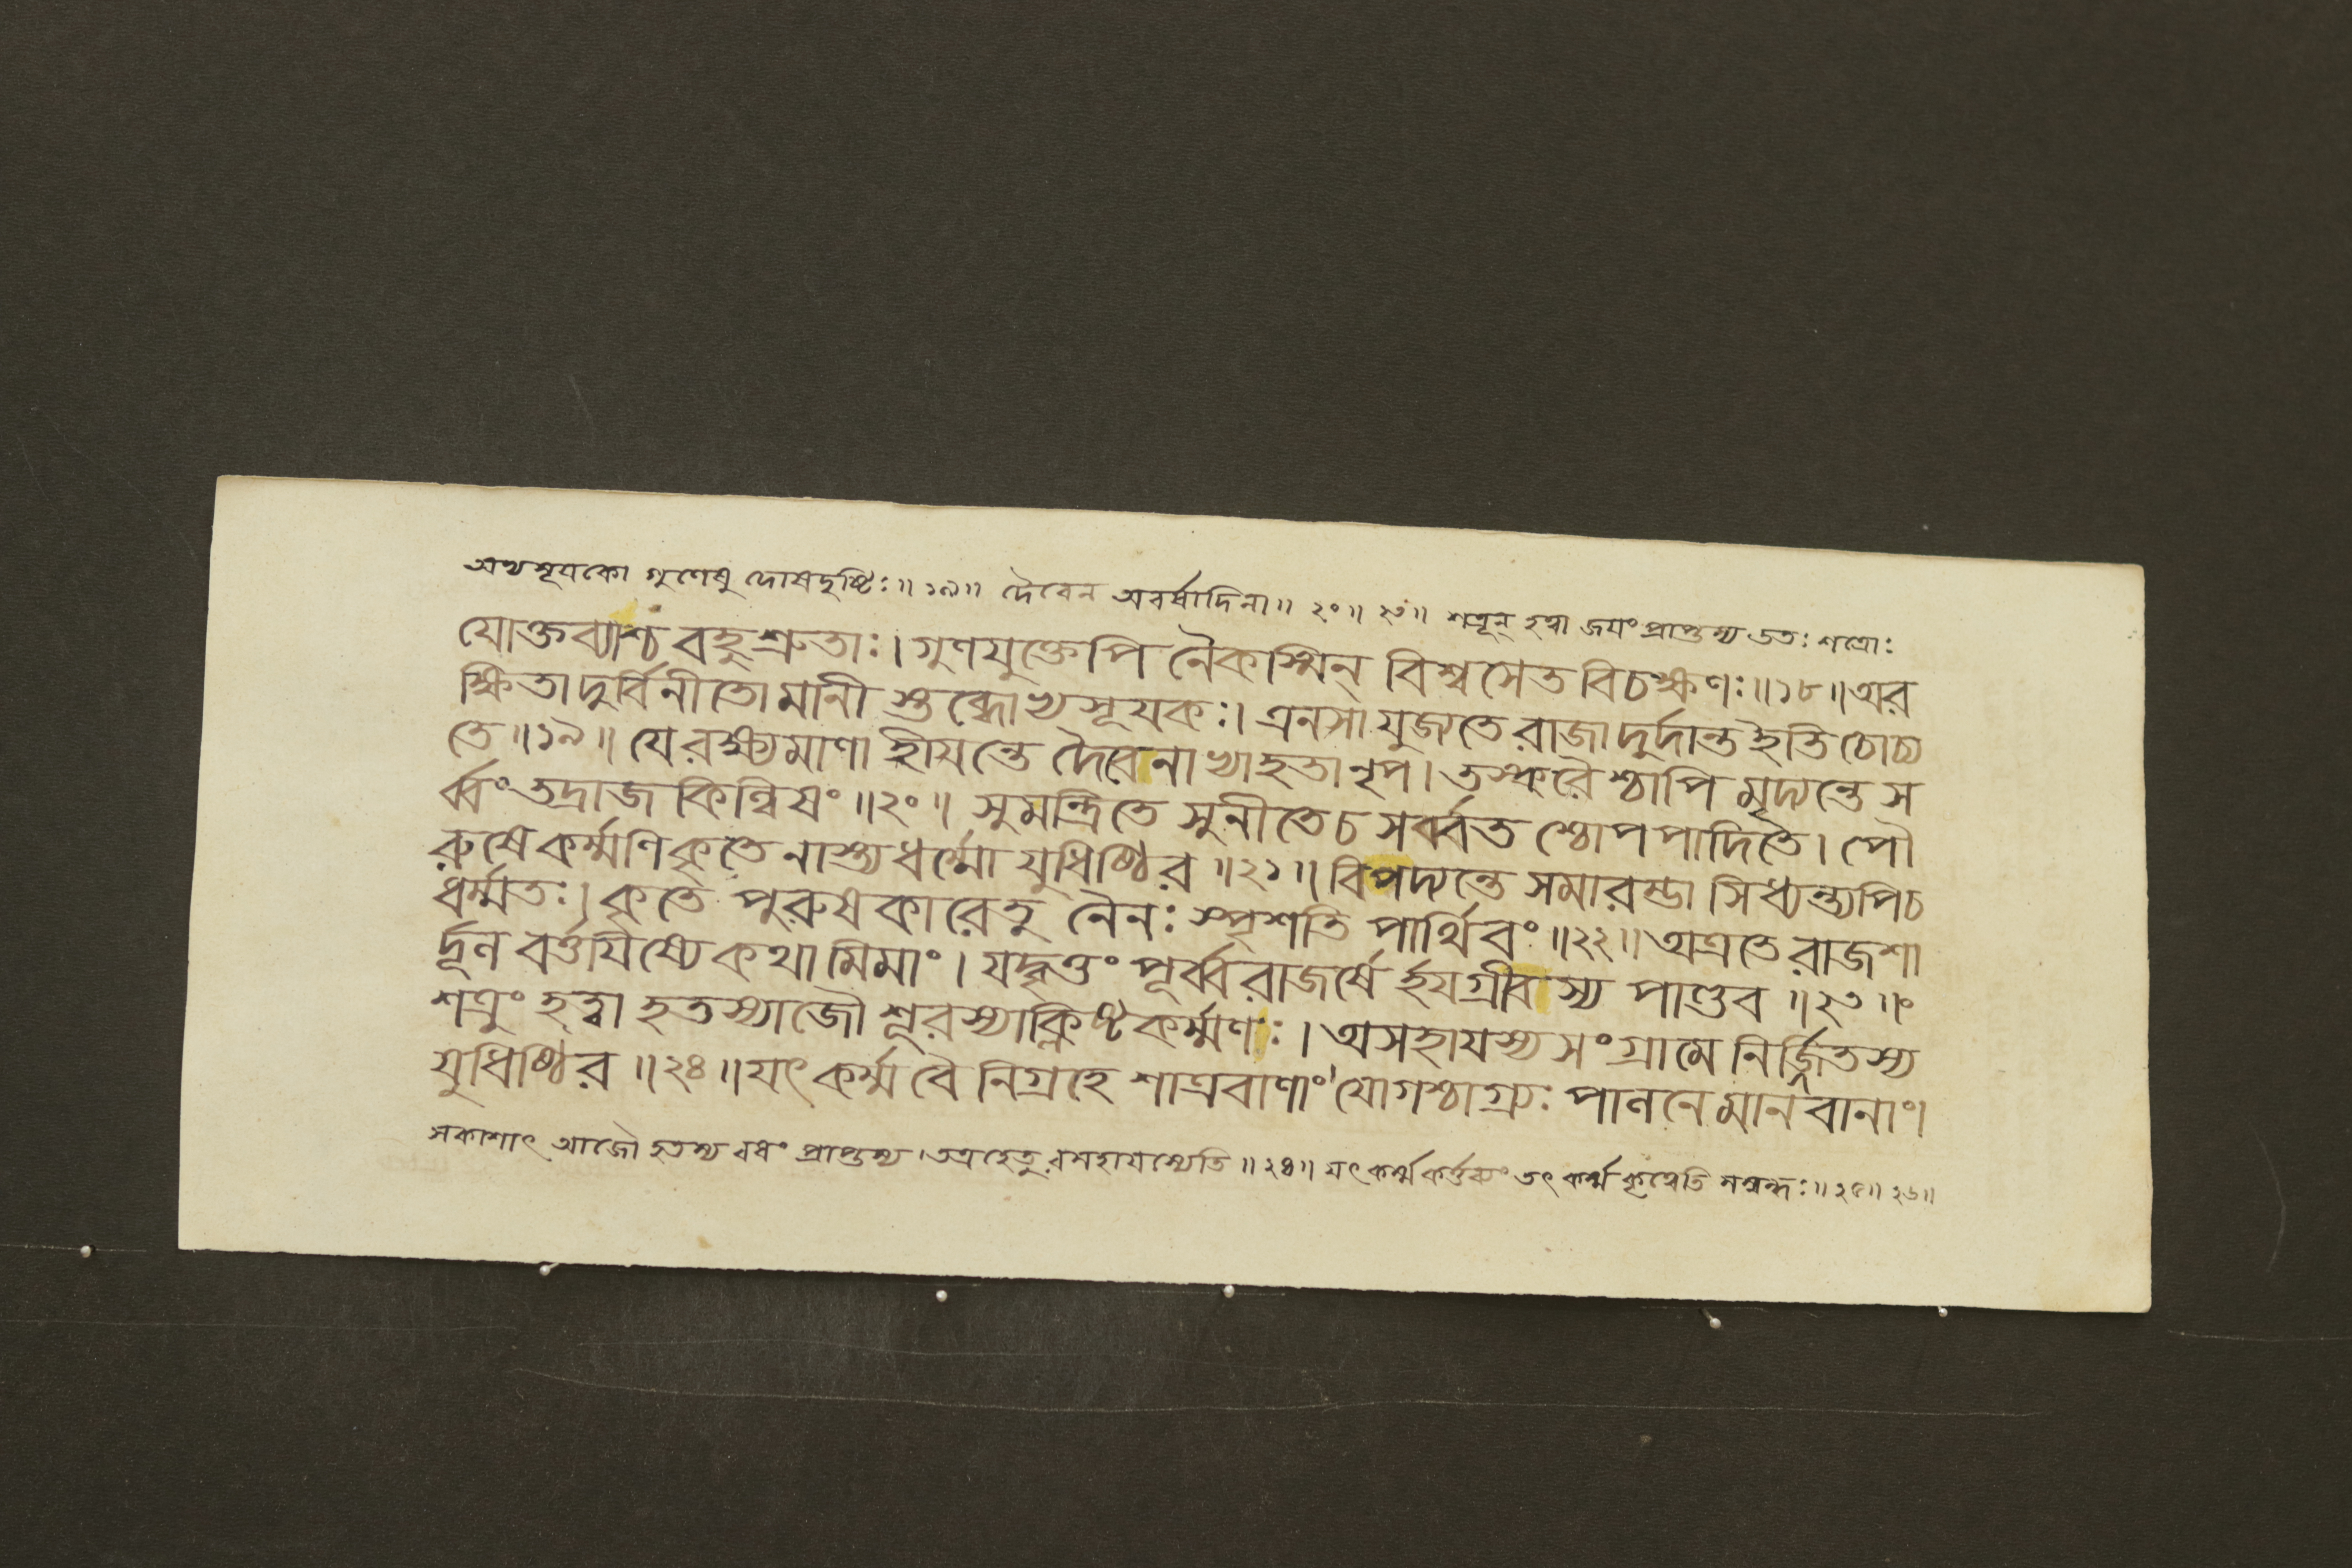 অভ্যসূযকো গুণেষু দোষদৃষ্টিঃ॥১৯॥ দৈবেন অবর্ষাদিনা॥২০॥২৩॥ শত্রূন্ হত্বা জযং প্রাপ্তস্য ততঃ শত্রোঃ
যোক্তব্যাশ্চ বহুশ্রুতাঃ। গুণযুক্তেপি নৈকস্মিন্ বিশ্বসেত বিচক্ষণঃ॥১৮॥ অর
ক্ষিতা দুর্বিনীতো মানী স্তব্ধোভ্যসূযকঃ। এনসা যুজ্যতে রাজা দুর্দান্ত ইতি চোচ্য
তে॥১৯॥ যে রক্ষ্যমাণা হীযন্তে দৈবেনাভ্যাহতা নৃপ। তস্করৈশ্চাপি মৃদ্যন্তে স
র্ব্বং তদ্রাজকিল্বিষং॥২০॥ সুমন্ত্রিতে সুনীতে চ সর্ব্বতশ্চোপপাদিতে। পৌ
রুষে কর্ম্মণি কৃতে নাস্ত্যধর্ম্মো যুধিষ্ঠির॥২১॥ বিপদ্যন্তে সমারম্ভা সিধ্যন্ত্যপি চ
ধর্ম্মতঃ। কৃতে পুরুষকারে তু নৈনঃ স্পৃশতি পার্থিবং॥২২॥ অত্র তে রাজশা
র্দূল বর্ত্তযিষ্যে কথামিমাং। যদ্বৃত্তং পূর্ব্বরাজর্ষে র্হযগ্রীবস্য পাণ্ডব॥২৩॥
শত্রুং হত্বা হতস্যাজৌ শূরস্যাক্লিষ্টকর্ম্মণঃ। অসহাযস্য সংগ্রামে নির্জ্জিতস্য
যুধিষ্ঠির॥২৪॥ যৎ কর্ম্ম বৈ নিগ্রহে শাত্রবাণাং যোগশ্চাগ্র্যঃ পালনে মানবানাং।
সকাশাৎ আজৌ হতস্য বধং প্রাপ্তস্য। তত্র হেতু রসহাযস্যেতি॥২৪॥ যৎ কর্ম্ম কর্ত্তব্যং তৎ কর্ম্ম কৃত্বেতি সম্বন্ধঃ॥২৫॥২৬॥